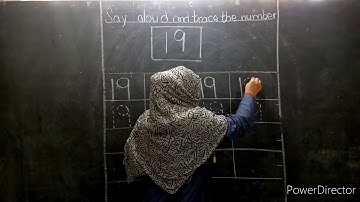 Say aloud and trace the number
19
19 9 1
PowerDirector